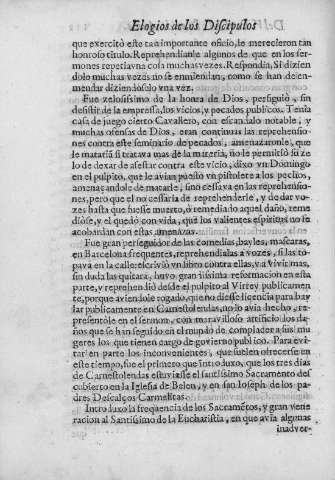 Elogios de los Discipulos
que exercitò este tan importante oficio, le merecieron tan
honroso titulo. Reprehendianle algunos de que en los ser-
mones repetia vna cosa muchas vezes. Respondia, Si dizien
dolo muchas vezes no se enmiendan, como se han de en-
mendar diziendoselo vna vez.
Fue zelosissimo de la honra de Dios, persiguiò, sin
desistir de la empresa, los vicios, y pecados publicos. Tenia
casa de juego cierto Cavallero, con escandalo notable, y
muchas ofensas de Dios, eran continuas las reprehensio-
nes contra este seminario de pecados, amenazaronle, que
le mataria si tratava mas de la materia, no le permitiò su ze
lo de dexar de asestar contra este vicio, dixo vn Domingo
en el pulpito, que le avian puesto vn pistolete a los pechos,
amenaçandole de matarle, sino cessava en las reprehensio-
nes, pero que el no cessaria de reprehenderle, y de dar vo-
zes hasta que fuesse muerto, ò remediado aquel daño, reme
diòse, y el quedò con vida, que los valientes espiritus no se
acobardan con estas amenazas.
Fue gran perseguidor de las comedias, bayles, mascaras,
en Barcelona frequentes, reprehendialas a vozes, si las to-
pava en la calle: escriviò vn libro contra ellas, y a Vivis mas,
sin duda las quitàra, huvo grandissima reformacion en esta
parte, y reprehendiò desde el pulpito al Virrey publicamen
te, porque aviendole rogado, que no diesse licencia para bay
lar publicamente en Carnestolendas, no lo avia hecho, re-
presentòle en el sermon, con maravilloso artificio los da-
ños que se han seguido en el mundo de complacer a sus mu
geres los que tienen cargo de govierno publico. Para evi-
tar en parte los inconvenientes, que suelen ofrecerse en
este tiempo, fue el primero que introduxo, que los tres dias
de Carnestolendas estuviesse el santissimo Sacramento des
cubierto en la Iglesia de Belen, y en san Joseph de los pa-
dres Descalços Carmelitas.
Introduxo la frequencia de los Sacramẽtos, y gran vene
racion al Santissimo de la Eucharistia, en que avia algunas
inadver-